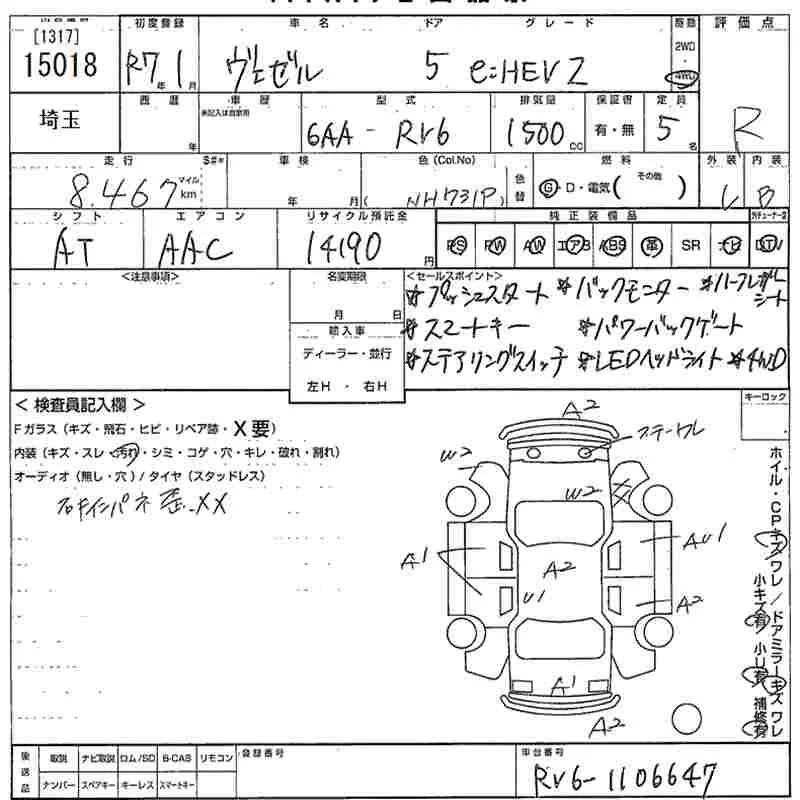 [1317]
15018
初度登録
R7年 1月
車名
ヴェゼル
ドア
5
グレード
e:HEV Z
駆動
2WD
4WD
評価点
R
埼玉
西暦
年
車歴
未記入は自家用
型式
6AA - RV6
排気量
1500 CC
保証書
有・無
定員
5名
走行
8.467 マイル km
S#*
車検
年 月(
色(Col.No)
NH731P)
色替
燃料
G・D・電気( その他 )
外装
内装
B
シフト
AT
エアコン
AAC
リサイクル預託金
14190円
純正装備品
PS PW AW エアB ABS 革 SR ナビ TV
<注意事項>
名変期限
月 日
輸入車
ディーラー・並行
左H ・ 右H
<セールスポイント>
*プッシュスタート *バックモニター *ハーフレザーシート
*スマートキー *パワーバックゲート
*ステアリングスイッチ *LEDヘッドライト *4WD
< 検査員記入欄 >
Fガラス(キズ・飛石・ヒビ・リペア跡・X要)
内装(キズ・スレ・汚れ・シミ・コゲ・穴・キレ・破れ・割れ)
オーディオ(無し・穴)/タイヤ(スタッドレス)
右インパネ XX
キーロック
A2
W2
W2
A1
AU1
A2
U1
A2
A1
A2
ホイル・CPキズワレ/ドアミラーキズワレ
小キズ有 小U有 補修有
後送品
取説 ナビ取説 ロム/SD B-CAS リモコン
ナンバー スペアキー キーレス スマートキー
登録番号
車台番号
RV6-1106647